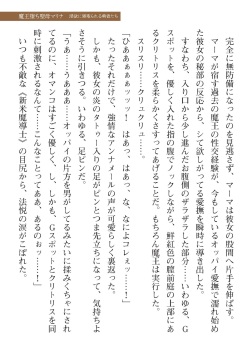 完全に無防備になったのを見逃さず、マーマは彼女の股間へ片手を伸ばす。
マーマが宿す過去の魔王の性交経験が、今もしているオッパイ愛撫で濡れ始め
た彼女の秘部の反応から、シて欲しがってる愛撫を瞬時に導き出した。
すなわち、入り口から少し進んだお腹側のザラザラした部分――いわゆる、G
スポットを、優しく挿入れた指の腹でノックしながら、鮮紅色の膣前庭の上部にあ
るクリトリスを柔らかく擦ること。もちろん魔王は実行する。
スリスリ……クリュクリュ……
「ひああぁぁぁぁっ……！　はっ……はぁっ、な、なによコレぇッ……！」
たったそれだけで、強情なアンナメールの声が可愛らしく裏返った。
しかも、彼女の炎のタトゥー入りの足がピンとつま先立ちになって、気持ちよ
さそうに引きつる。いわゆる、足ピンだ。
「うあ……うああっ……オッパイの片方を男がしてるみたいに揉みくちゃにされ
てるのに、オマンコはすごく優しく、し、しかも、Gスポットとクリトリスを同
時に刺激されるなんて……こんなことって、ああ、あるのぉッ……！」
いつも不敵な《新米魔導士》の目尻から、法悦の涙がこぼれた。